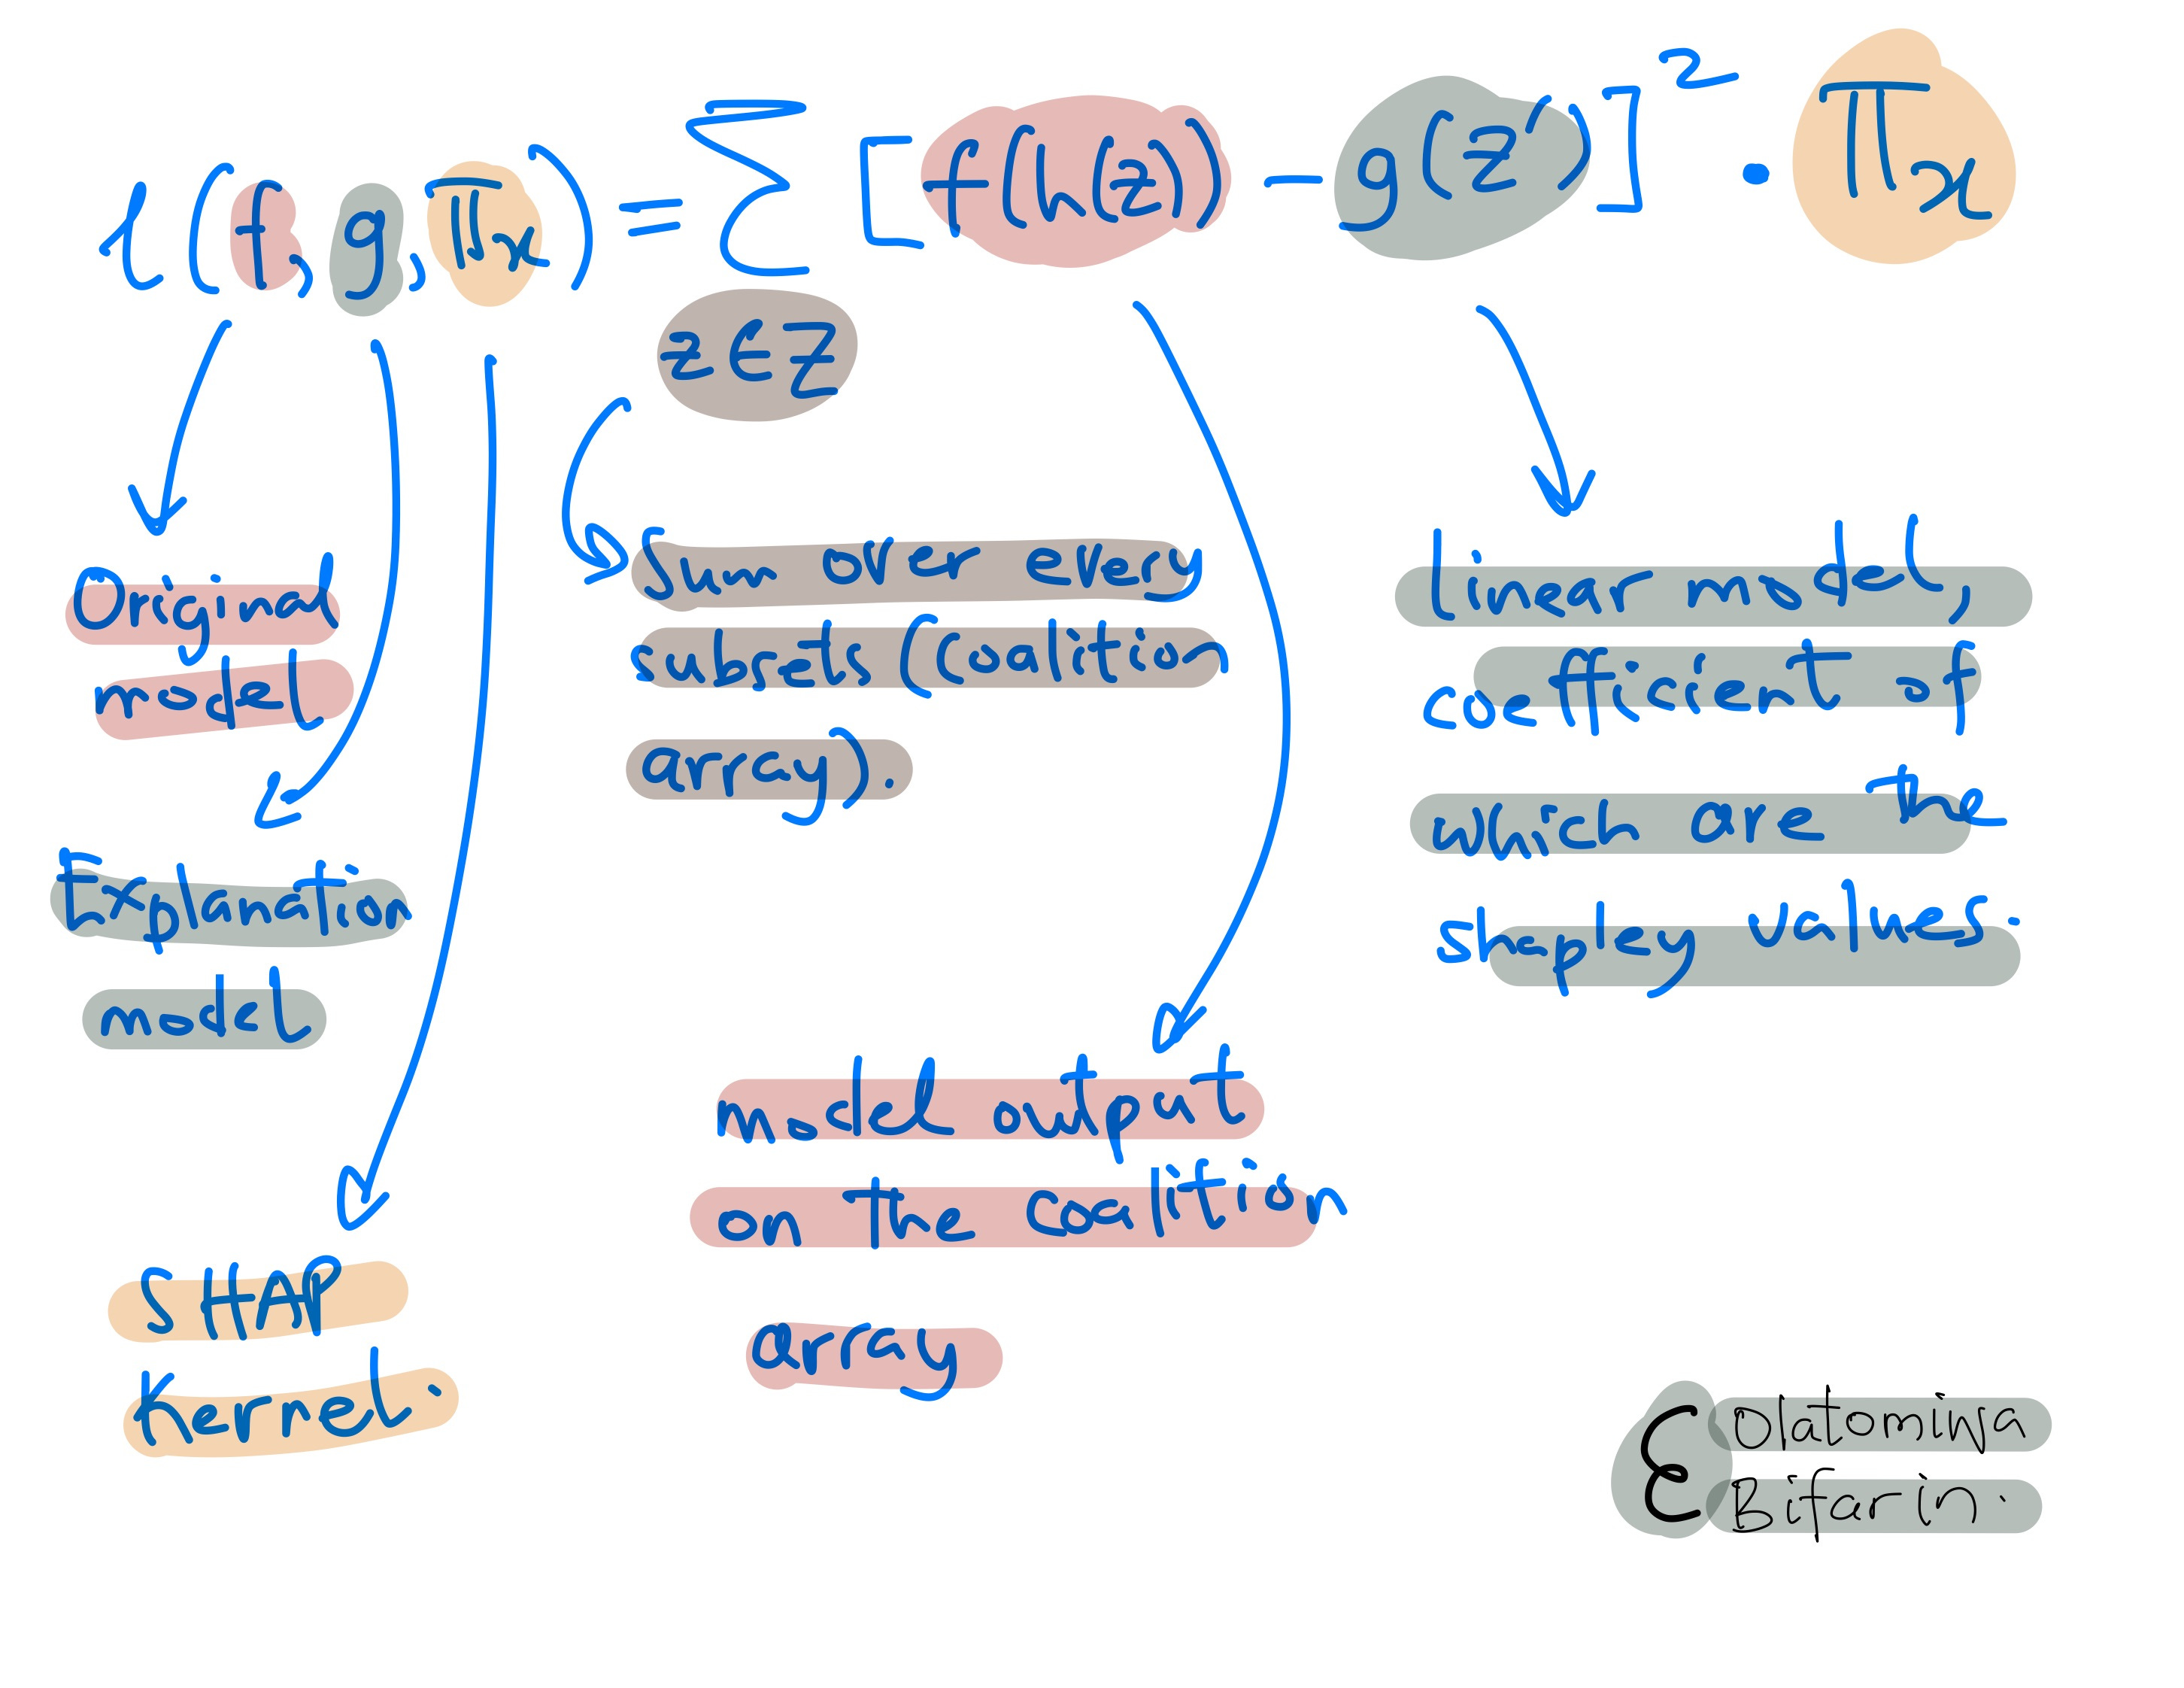 l(f, g, πx) = Σ [f(h(z)) - g(z')]² · πx
z ∈ Z
Original
model
Explanation
model
SHAP
Kernel.
Sum over every
subsets (Coalition
array).
model output
on the Coalition
array
linear model,
coefficient of
which are the
shapley values.
Olatomiwa
Bifarin.